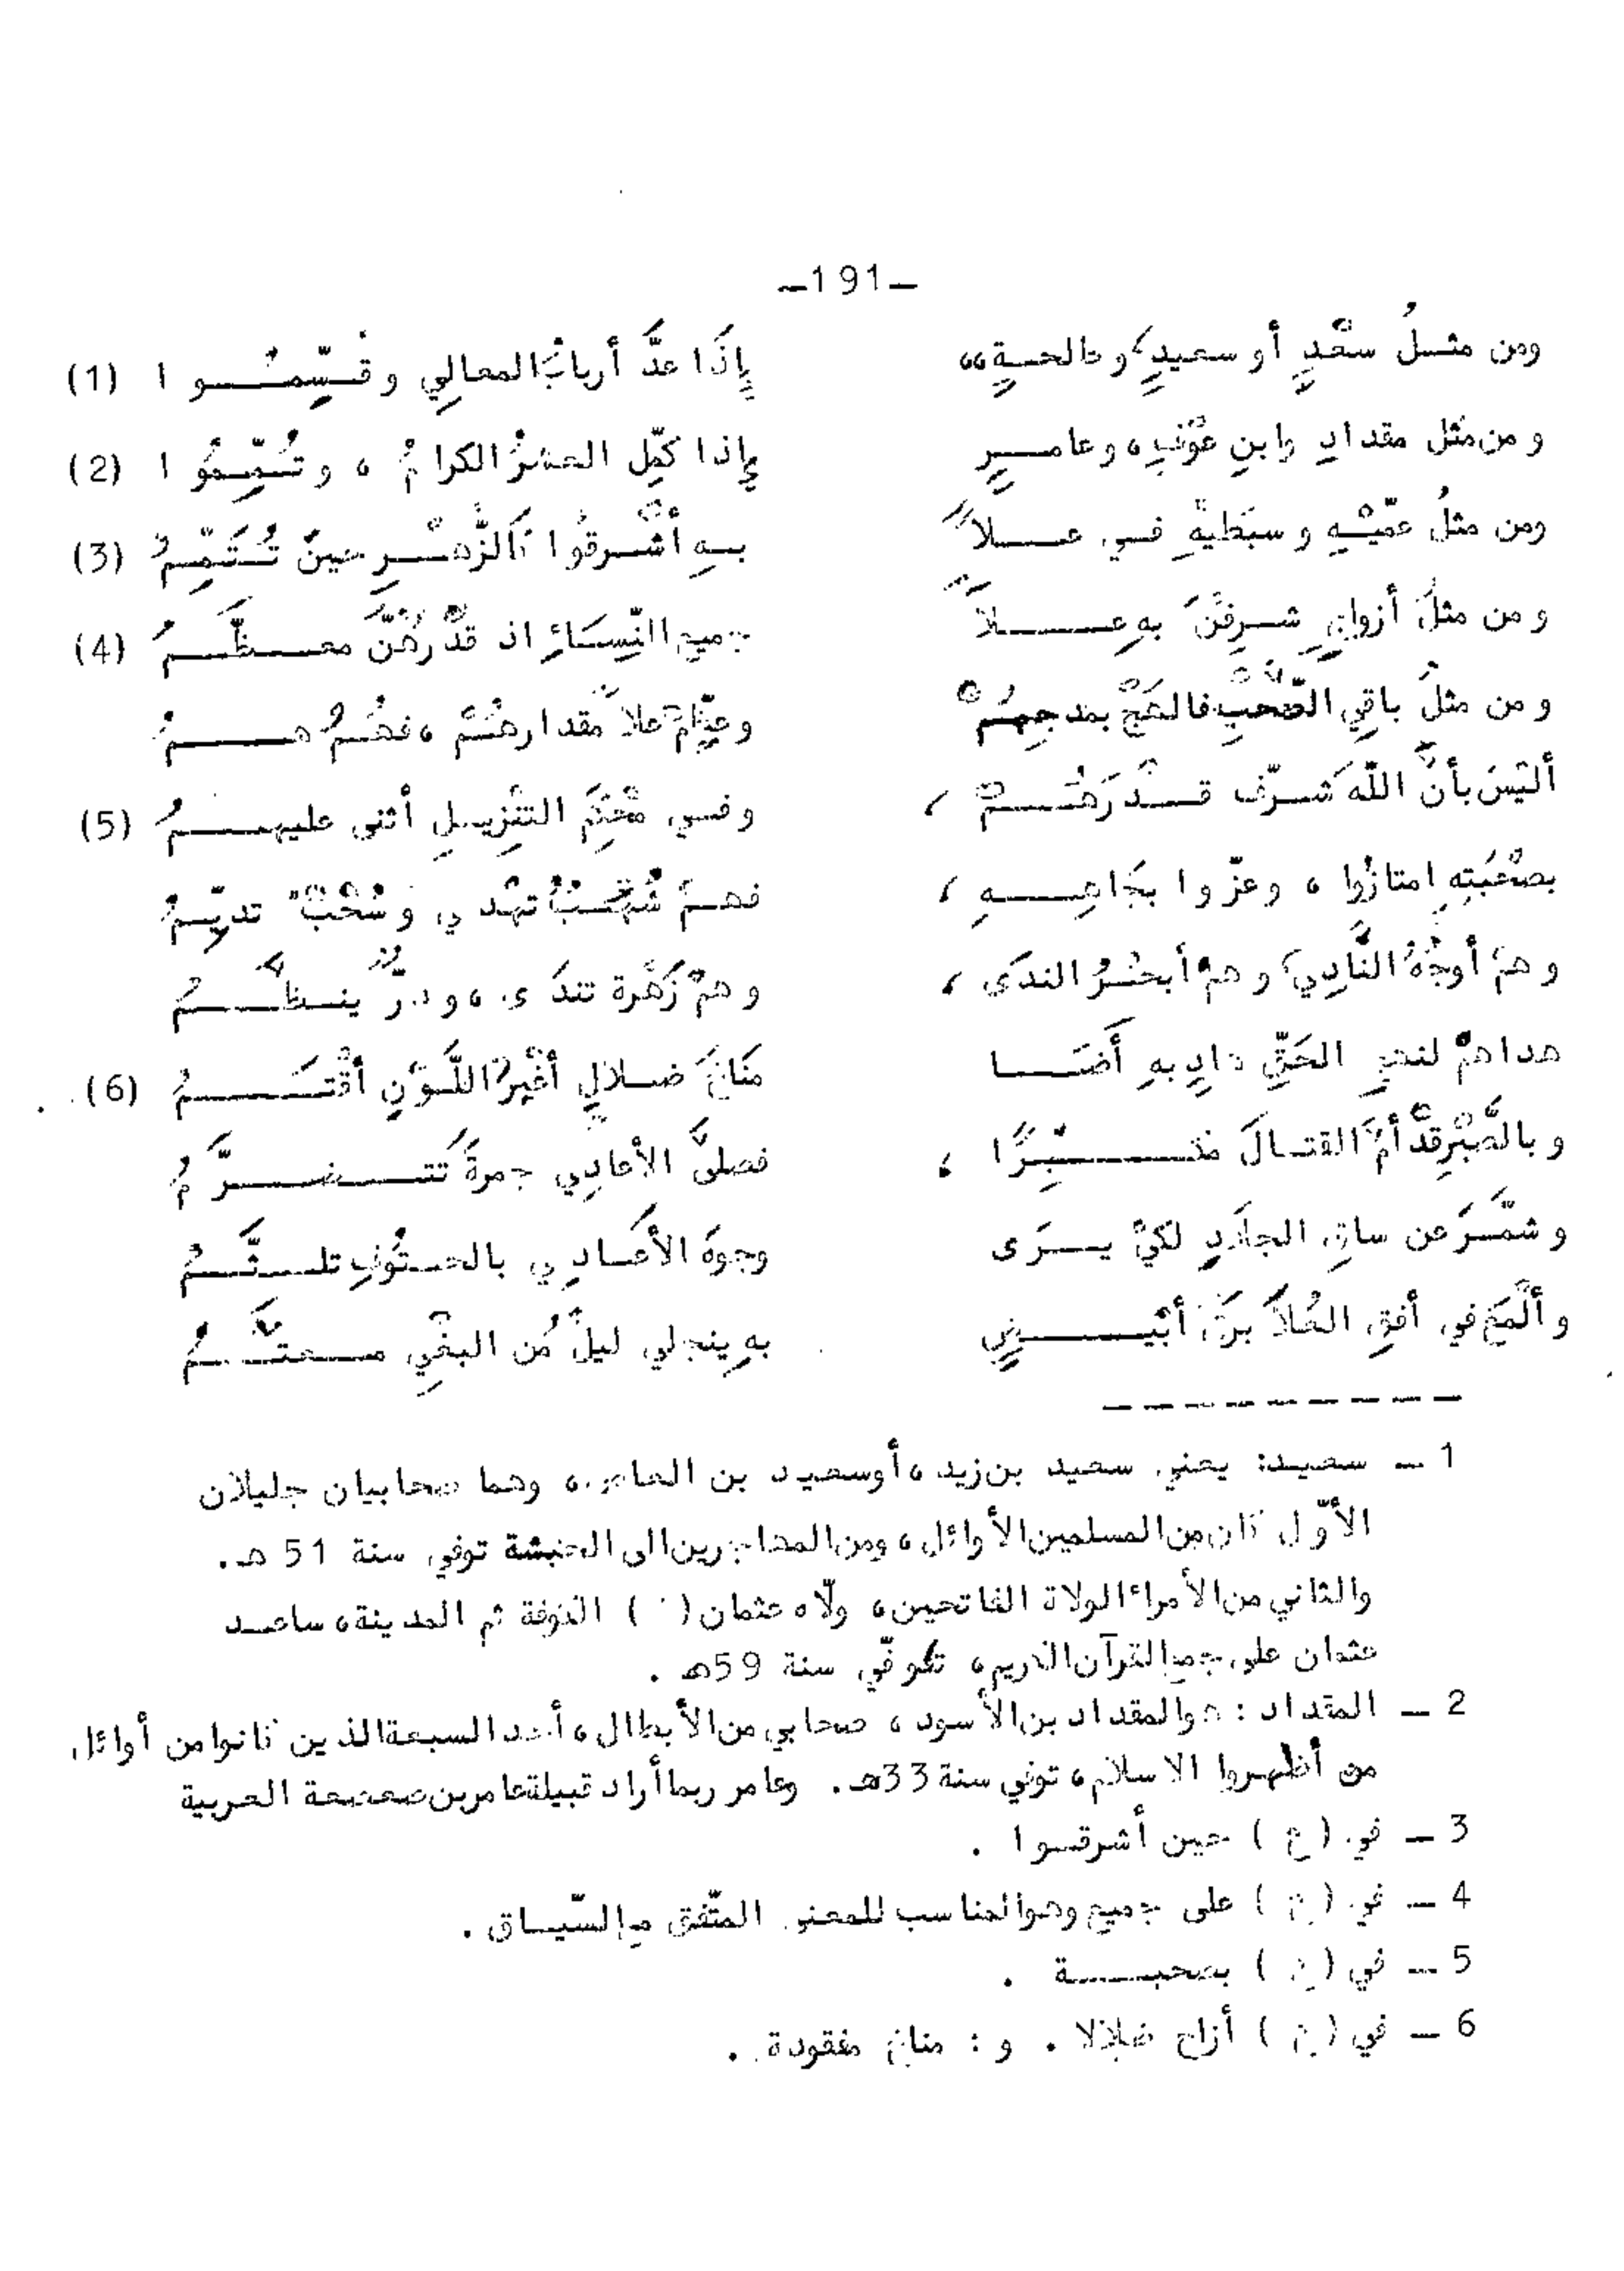 -191-
ومن مثلُ سعْدٍ أو سعيدٍ، وطالحةٍ،، إِذَا عدَّ أربابُ المعالِي وقُسِّمُوا (1)
ومن مثل مقدادِ وابنِ عوْفٍ، وعامرٍ إذا كمِّل العشرُ الكرامُ، وتُمِّمُوا (2)
ومن مثلُ عمّيْهِ وسبَطيهِ في علاً بهِ أشْرقُوا كَالزُّهْرِ حينَ تُتَمِّمُ (3)
ومن مثلُ أزواجٍ شرِفْنَ بهِ علاً جميع النِّسَاءِ اذ قدْرُهُنَّ معظَّمُ (4)
ومن مثلُ باقِي الصَّحْبِ فالهَجْ بمدحِهُمْ وعِظَامٌ علاَ مقدارهُمْ، فهُمُ همُ
أليْسَ بأنَّ اللّهَ شرّف قدْرَهُمْ، وفي محْكَمِ التنْزيلِ أثنى عليهمُ (5)
بصُحْبَتِهِ امتازُوا، وعزّوا بجَاهِهِ، فهمْ شُهُبٌ تهْدي وسُحْبٌ تديّمُ
وهمْ أوجُهُ النَّادِي، وهمْ أبحُرُ الندَى، وهمْ زَهْرة تندَى، ودرٌّ ينظَّمُ
هداهمْ لنهجِ الحَقّ هادٍ بهِ أضَا مَنَاخَ ضلالٍ أغْبرُ اللَّوْنِ أقْتَمُ (6)
وبالصَّبْرِ قدْ أمَّ القتالَ مُتبِّرًا، فصلىَّ الأعادِي جمرةً تتضرَّمُ
وشمَّرَ عن ساقِ الجلاَدِ لكيْ يرَى وجوهَ الأعَادِي بالحتُوفِ تلثَّمُ
وألْمَعَ في أفقِ العُلاَ برقَ أبْيضٍ بهِ ينجلي ليلٌ مُن البغْيِ معتَّمُ
1 - سعيد: يعني سعيد بن زيد، أو سعيد بن العاص، وهما صحابيان جليلان
الأوّل كان من المسلمين الأوائل، ومن المهاجرين الى الحبشة توفي سنة 51 هـ.
والثاني من الأمراء الولاة الفاتحين، ولّاه عثمان ( ) الكوفة ثم المدينة، ساعد
عثمان على جمع القرآن الكريم، توفّي سنة 59هـ.
2 - المقداد: هو المقداد بن الأسود، صحابي من الأبطال، أحد السبعة الذين كانوا من أوائل
من أظهروا الاسلام، توفي سنة 33هـ. وعامر ربما أراد قبيلة عامر بن صعصعة العربية
3 - في (ع) حين أشرقوا.
4 - في (ع) على جميع وهو المناسب للمعنى المتّفق مع السّياق.
5 - في (ع) بصحبة.
6 - في (ع) أزاح ضلالا. و: مناخ مفقودة.